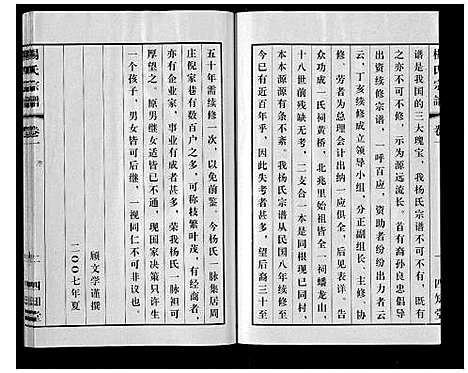 楊氏宗譜
卷一
四知堂
谱是我国的三大瑰宝，我杨氏宗谱不可不续，既有
之亦不可不修，示为源远流长。首有裔孙良忠倡导
出资续修宗谱，一呼百应，资助者纷纷出力者云
云，丁亥续修成立领导小组，分正副组长、主修、协
修、劳者为总理会计出纳一应俱全，后见表详。告
众功成一氏祠黄桥，北兆里始祖皆全一祠蟠龙山，
十八世前残缺无考，二支合一本是同根现已同村，
本本源源有条不紊。我杨氏宗谱从民国八年续修至
今已有近百年之久，因此失考者甚多，望后裔三十至
五十年需续修一次，以免前鉴。今杨氏一脉集居周
庄倪家巷有数百户之多，可称枝繁叶茂，有经商者，
亦有企业家，事业有成者甚多，荣我杨氏一脉，祖
厚望之。原男继女适皆已不通，现国家决策只许生
一个孩子，男女皆可后继，一视同仁不可非议也。
顾文学谨撰
二〇〇七年夏
楊氏宗譜
卷一